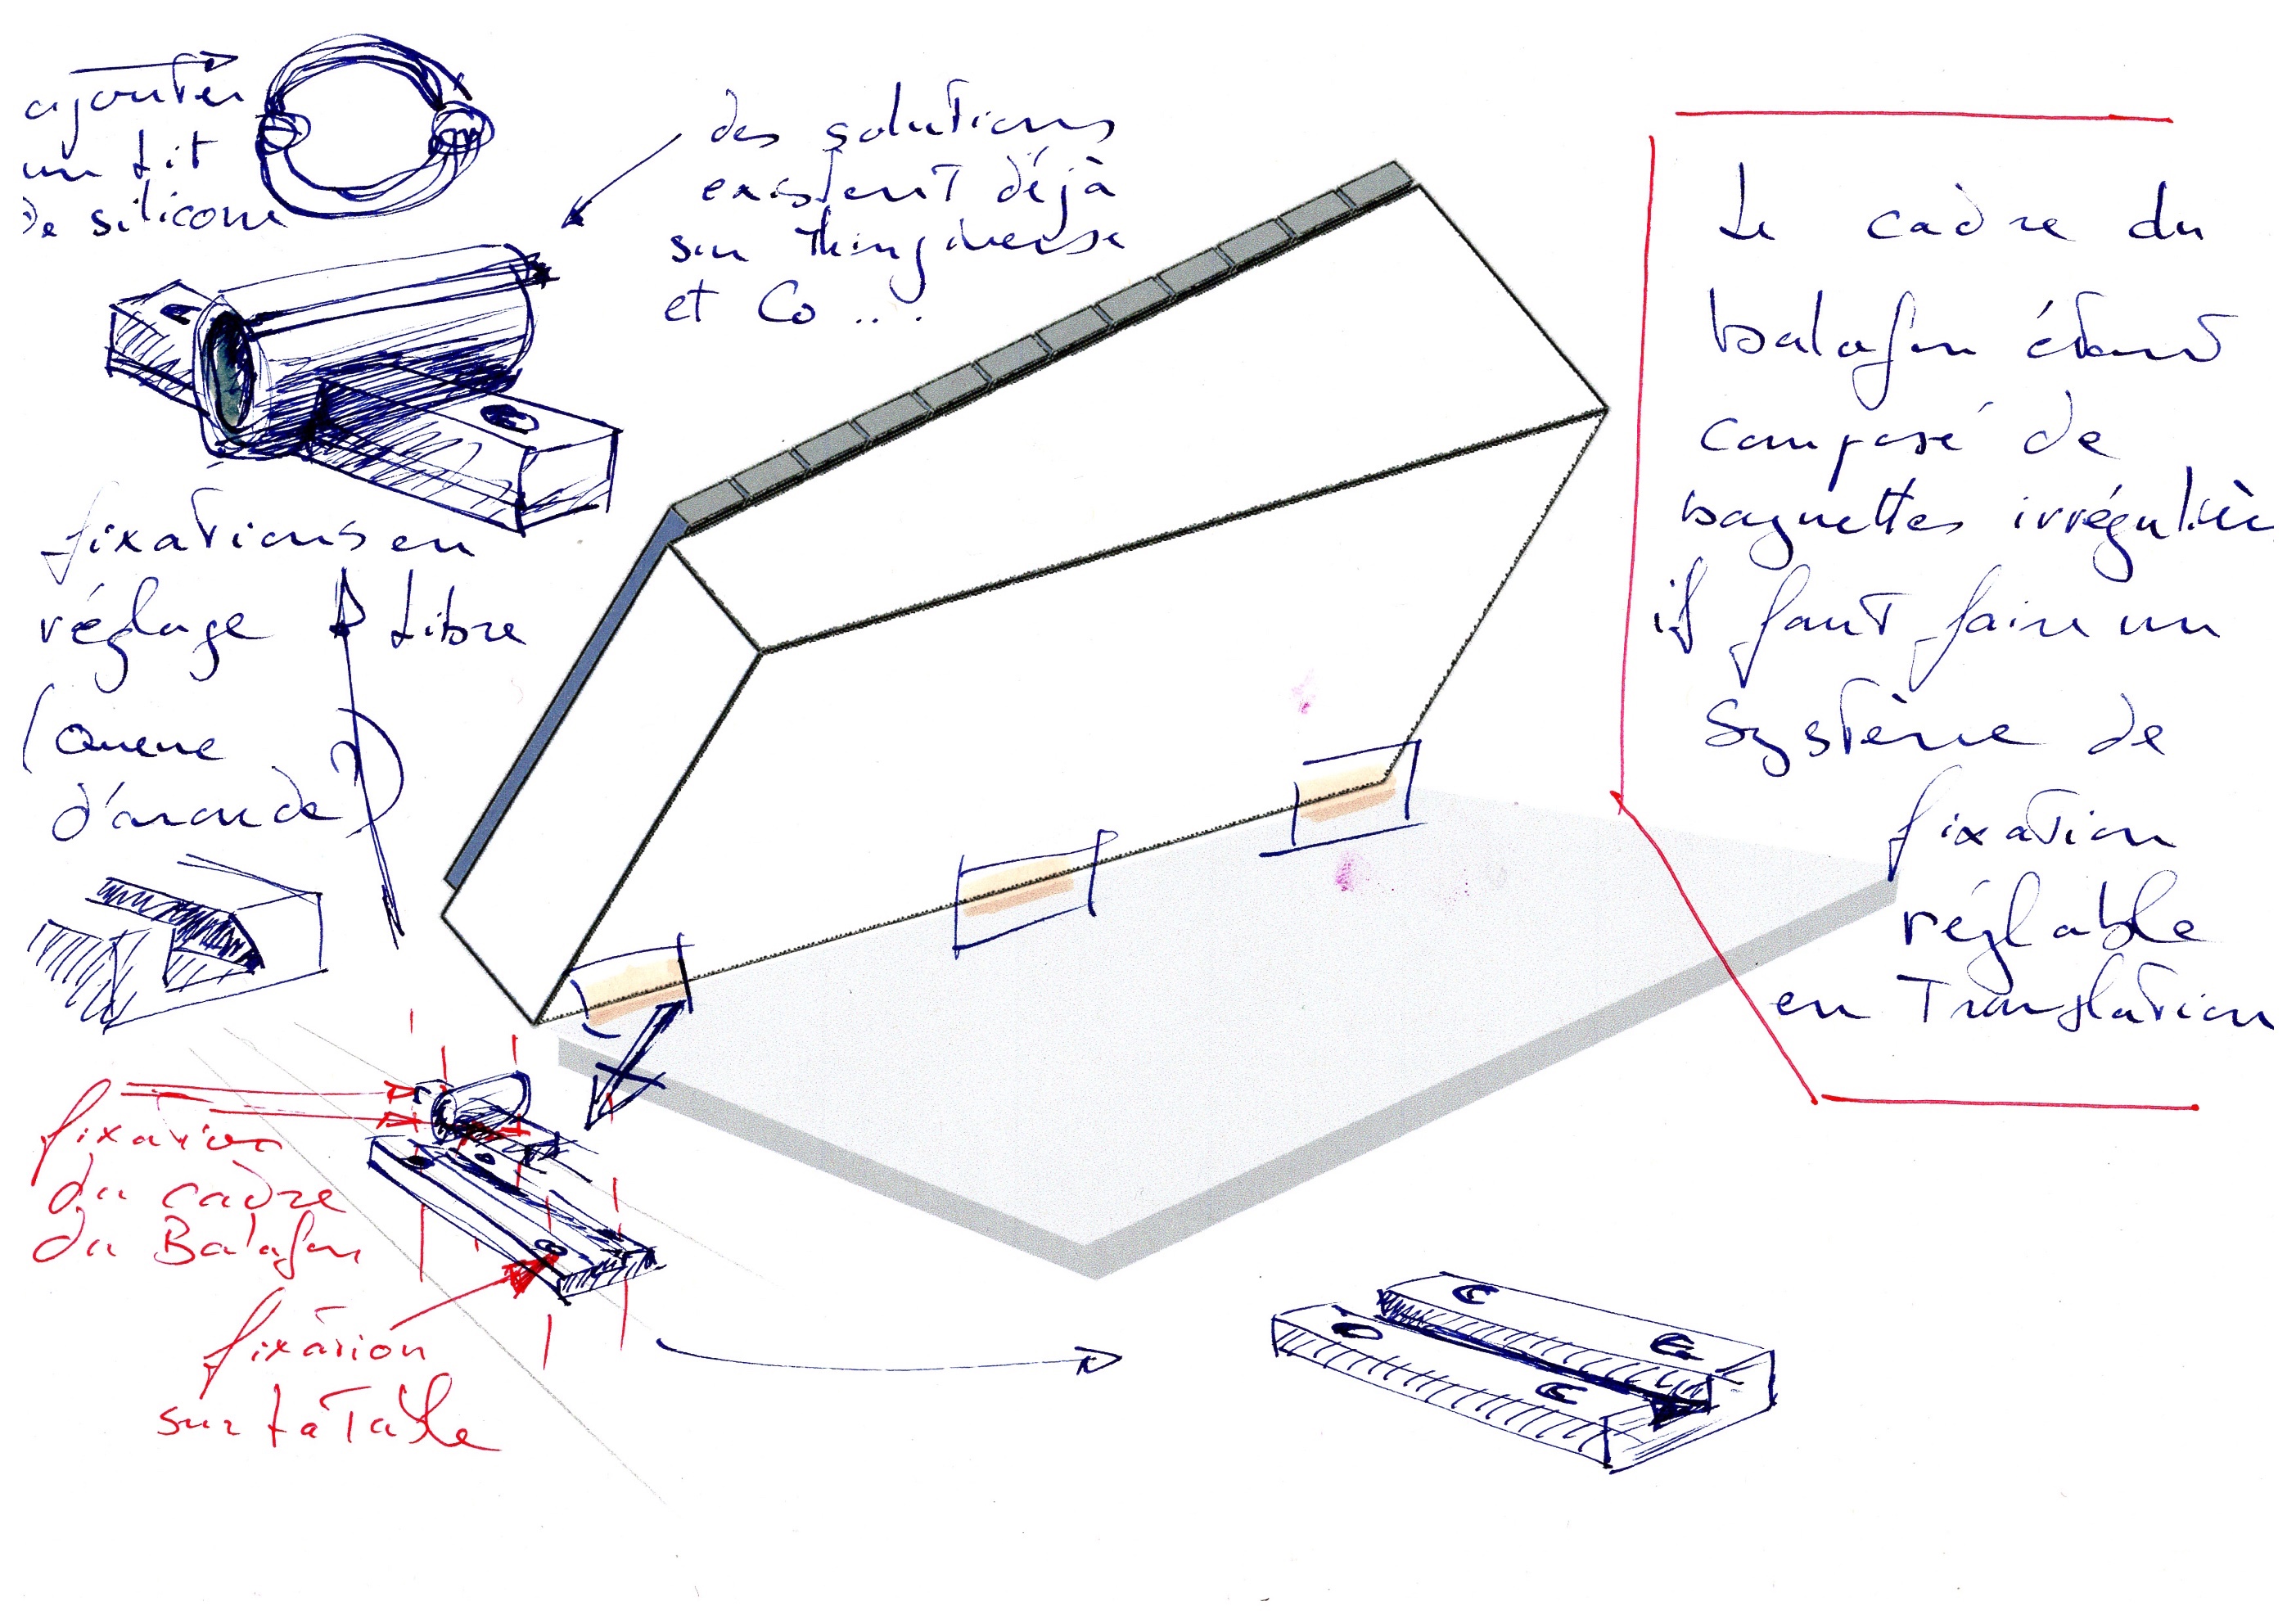 ajouter
un lit
de silicone
des solutions
existent déjà
sur Thingiverse
et Co ...
fixations en
réglage libre
(queue
d'aronde)
Le cadre du
balafon étant
composé de
baguettes irréguliè
il faut faire un
système de
fixation
réglable
en Translation
fixation
du cadre
du Balafon
fixation
sur la Table